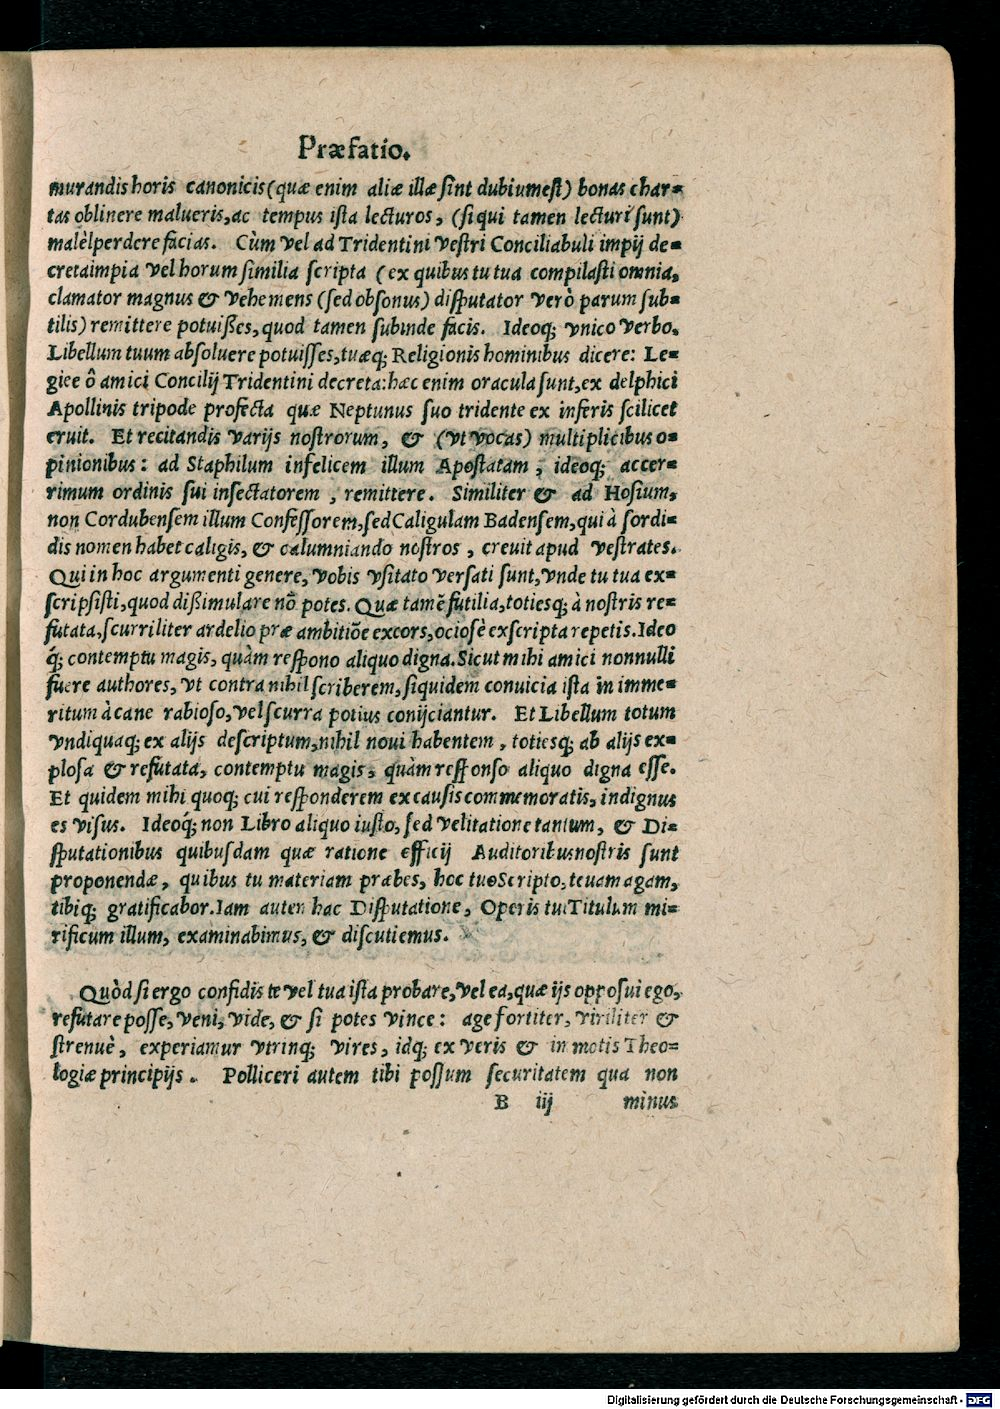 Præfatio.
murandis horis canonicis (quæ enim aliæ illæ sint dubium est) bonas char=
tas oblinere malueris, ac tempus ista lecturos, (si qui tamen lecturi sunt)
malè perdere facias. Cùm vel ad Tridentini vestri Conciliabuli impij de=
creta impia vel horum similia scripta (ex quibus tu tua compilasti omnia,
clamator magnus & vehemens (sed obsonus) disputator verò parum sub=
tilis) remittere potuißes, quod tamen subinde facis. Ideoq; vnico verbo,
Libellum tuum absoluere potuisses, tuæq; Religionis hominibus dicere: Le=
giee ô amici Concilij Tridentini decreta: hæc enim oracula sunt, ex delphici
Apollinis tripode profecta quæ Neptunus suo tridente ex inferis scilicet
eruit. Et recitandis varijs nostrorum, & (vt vocas) multiplicibus o=
pinionibus: ad Staphilum infelicem illum Apostatam, ideoq; accer=
rimum ordinis sui insectatorem, remittere. Similiter & ad Hosium,
non Cordubensem illum Confessorem, sed Caligulam Badensem, qui à sordi=
dis nomen habet caligis, & calumniando nostros, creuit apud vestrates.
Qui in hoc argumenti genere, vobis vsitato versati sunt, vnde tu tua ex=
scripsisti, quod dißimulare nõ potes. Quæ tamẽ futilia, totiesq; à nostris re=
futata, scurriliter ardelio præ ambitiõe excors, ociosè exscripta repetis. Ideo
q́; contemptu magis, quàm respono aliquo digna. Sicut mihi amici nonnulli
fuere authores, vt contra nihil scriberem, siquidem conuicia ista in imme=
ritum à cane rabioso, vel scurra potius conijciantur. Et Libellum totum
vndiquaq; ex alijs descriptum, nihil noui habentem, totiesq; ab alijs ex=
plosa & refutata, contemptu magis, quàm responso aliquo digna esse.
Et quidem mihi quoq; cui responderem ex causis commemoratis, indignus
es visus. Ideoq́; non Libro aliquo iusto, sed velitatione tantum, & Di=
sputationibus quibusdam quæ ratione efficij Auditoribus nostris sunt
proponendæ, quibus tu materiam præbes, hoc tuo Scripto, tecum agam,
tibiq; gratificabor. Iam autem hac Disputatione, Operis tui Titulum mi=
rificum illum, examinabimus, & discutiemus.
Quòd si ergo confidis te vel tua ista probare, vel ea, quæ ijs opposui ego,
refutare posse, veni, vide, & si potes vince: age fortiter, viriliter &
strenuè, experiamur vtrinq; vires, idq; ex veris & inmotis Theo=
logiæ principijs. Polliceri autem tibi possum securitatem qua non
B iij minus
Digitalisierung gefördert durch die Deutsche Forschungsgemeinschaft - DFG